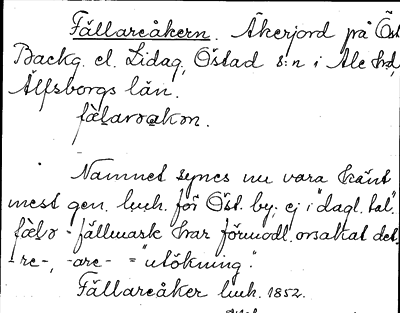 Fällareåkern. Åkerjord på Öst
Backg. el. Lidag, Östad s:n i Ale hd,
Älfsborgs län.
fälarəåkən.
Namnet synes nu vara känt
mest gen. huh. för Öst. by; ej i "dagl. tal".
- fällmask har förmodl. orsakat det.
-re-, -are- = "utökning".
Fällareåker huh. 1852.